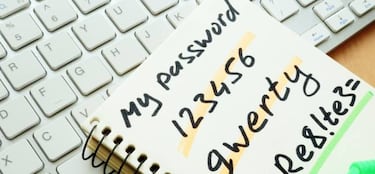 My password
123456
qwerty
Re8!te3=